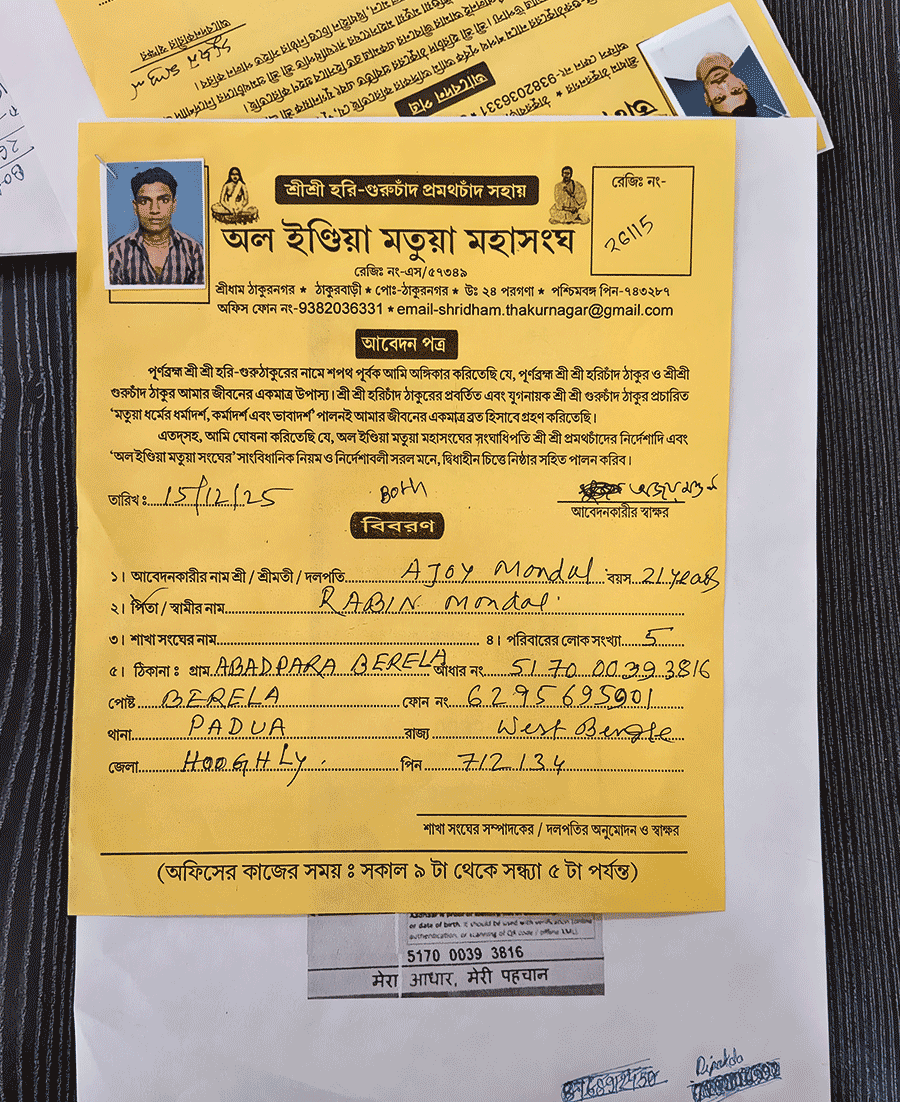 শ্রীশ্রী হরি-গুরুচাঁদ প্রমথচাঁদ সহায়
রেজিঃ নং-
26115
অল ইণ্ডিয়া মতুয়া মহাসংঘ
রেজিঃ নং-এস/৫৭৩৪৯
শ্রীধাম ঠাকুরনগর ★ ঠাকুরবাড়ী ★ পোঃ-ঠাকুরনগর ★ উঃ ২৪ পরগণা ★ পশ্চিমবঙ্গ পিন-৭৪৩২৮৭
অফিস ফোন নং-9382036331 ★ email-shridham.thakurnagar@gmail.com
আবেদন পত্র
পূর্ণব্রহ্ম শ্রী শ্রী হরি-গুরুঠাকুরের নামে শপথ পূর্বক আমি অঙ্গিকার করিতেছি যে, পূর্ণব্রহ্ম শ্রী শ্রী হরিচাঁদ ঠাকুর ও শ্রীশ্রী
গুরুচাঁদ ঠাকুর আমার জীবনের একমাত্র উপাস্য। শ্রী শ্রী হরিচাঁদ ঠাকুরের প্রবর্তিত এবং যুগনায়ক শ্রী শ্রী গুরুচাঁদ ঠাকুর প্রচারিত
‘মতুয়া ধর্মের ধর্মাদর্শ, কর্মাদর্শ এবং ভাবাদর্শ’ পালনই আমার জীবনের একমাত্র ব্রত হিসাবে গ্রহণ করিতেছি।
এতদ্‌সহ, আমি ঘোষনা করিতেছি যে, অল ইণ্ডিয়া মতুয়া মহাসংঘের সংঘাধিপতি শ্রী শ্রী প্রমথচাঁদের নির্দেশাদি এবং
‘অল ইণ্ডিয়া মতুয়া সংঘের’ সাংবিধানিক নিয়ম ও নির্দেশাবলী সরল মনে, দ্বিধাহীন চিত্তে নিষ্ঠার সহিত পালন করিব।
তারিখ ঃ 15/12/25 Both অজয় মন্ডল
আবেদনকারীর স্বাক্ষর
বিবরণ
১। আবেদনকারীর নাম শ্রী / শ্রীমতী / দলপতি AJOY Mondal বয়স 21 years
২। পিতা / স্বামীর নাম RABIN Mondal
৩। শাখা সংঘের নাম ৪। পরিবারের লোক সংখ্যা 5
৫। ঠিকানা ঃ গ্রাম ABADPARA BERELA আধার নং 5170 0039 3816
পোষ্ট BERELA ফোন নং 6295695901
থানা PADUA রাজ্য West Bengle
জেলা HOOGHLY পিন 712134
শাখা সংঘের সম্পাদকের / দলপতির অনুমোদন ও স্বাক্ষর
(অফিসের কাজের সময় ঃ সকাল ৯ টা থেকে সন্ধ্যা ৫ টা পর্যন্ত)
or date of birth. It should be used with verification (online
authentication, or scanning of QR code / offline XML).
5170 0039 3816
मेरा आधार, मेरी पहचान
Dipakda